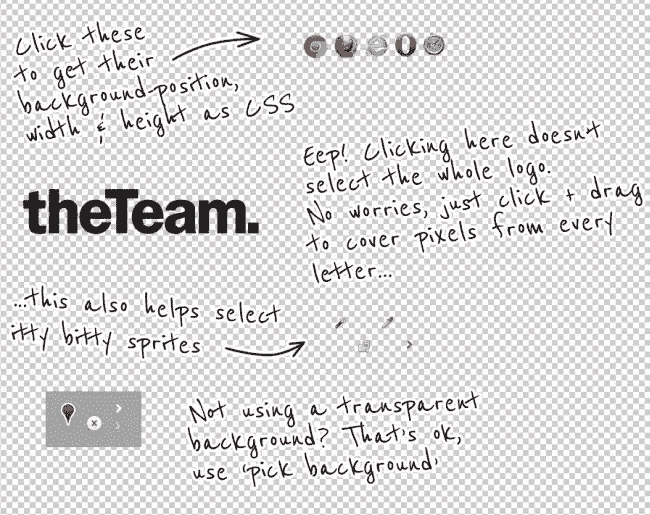 Click these
to get their
background-position,
width & height as CSS
Eep! Clicking here doesnt
select the whole logo.
No worries, just click + drag
to cover pixels from every
letter...
theTeam.
...this also helps select
itty bitty sprites
Not using a transparent
background? That's ok,
use 'pick background'